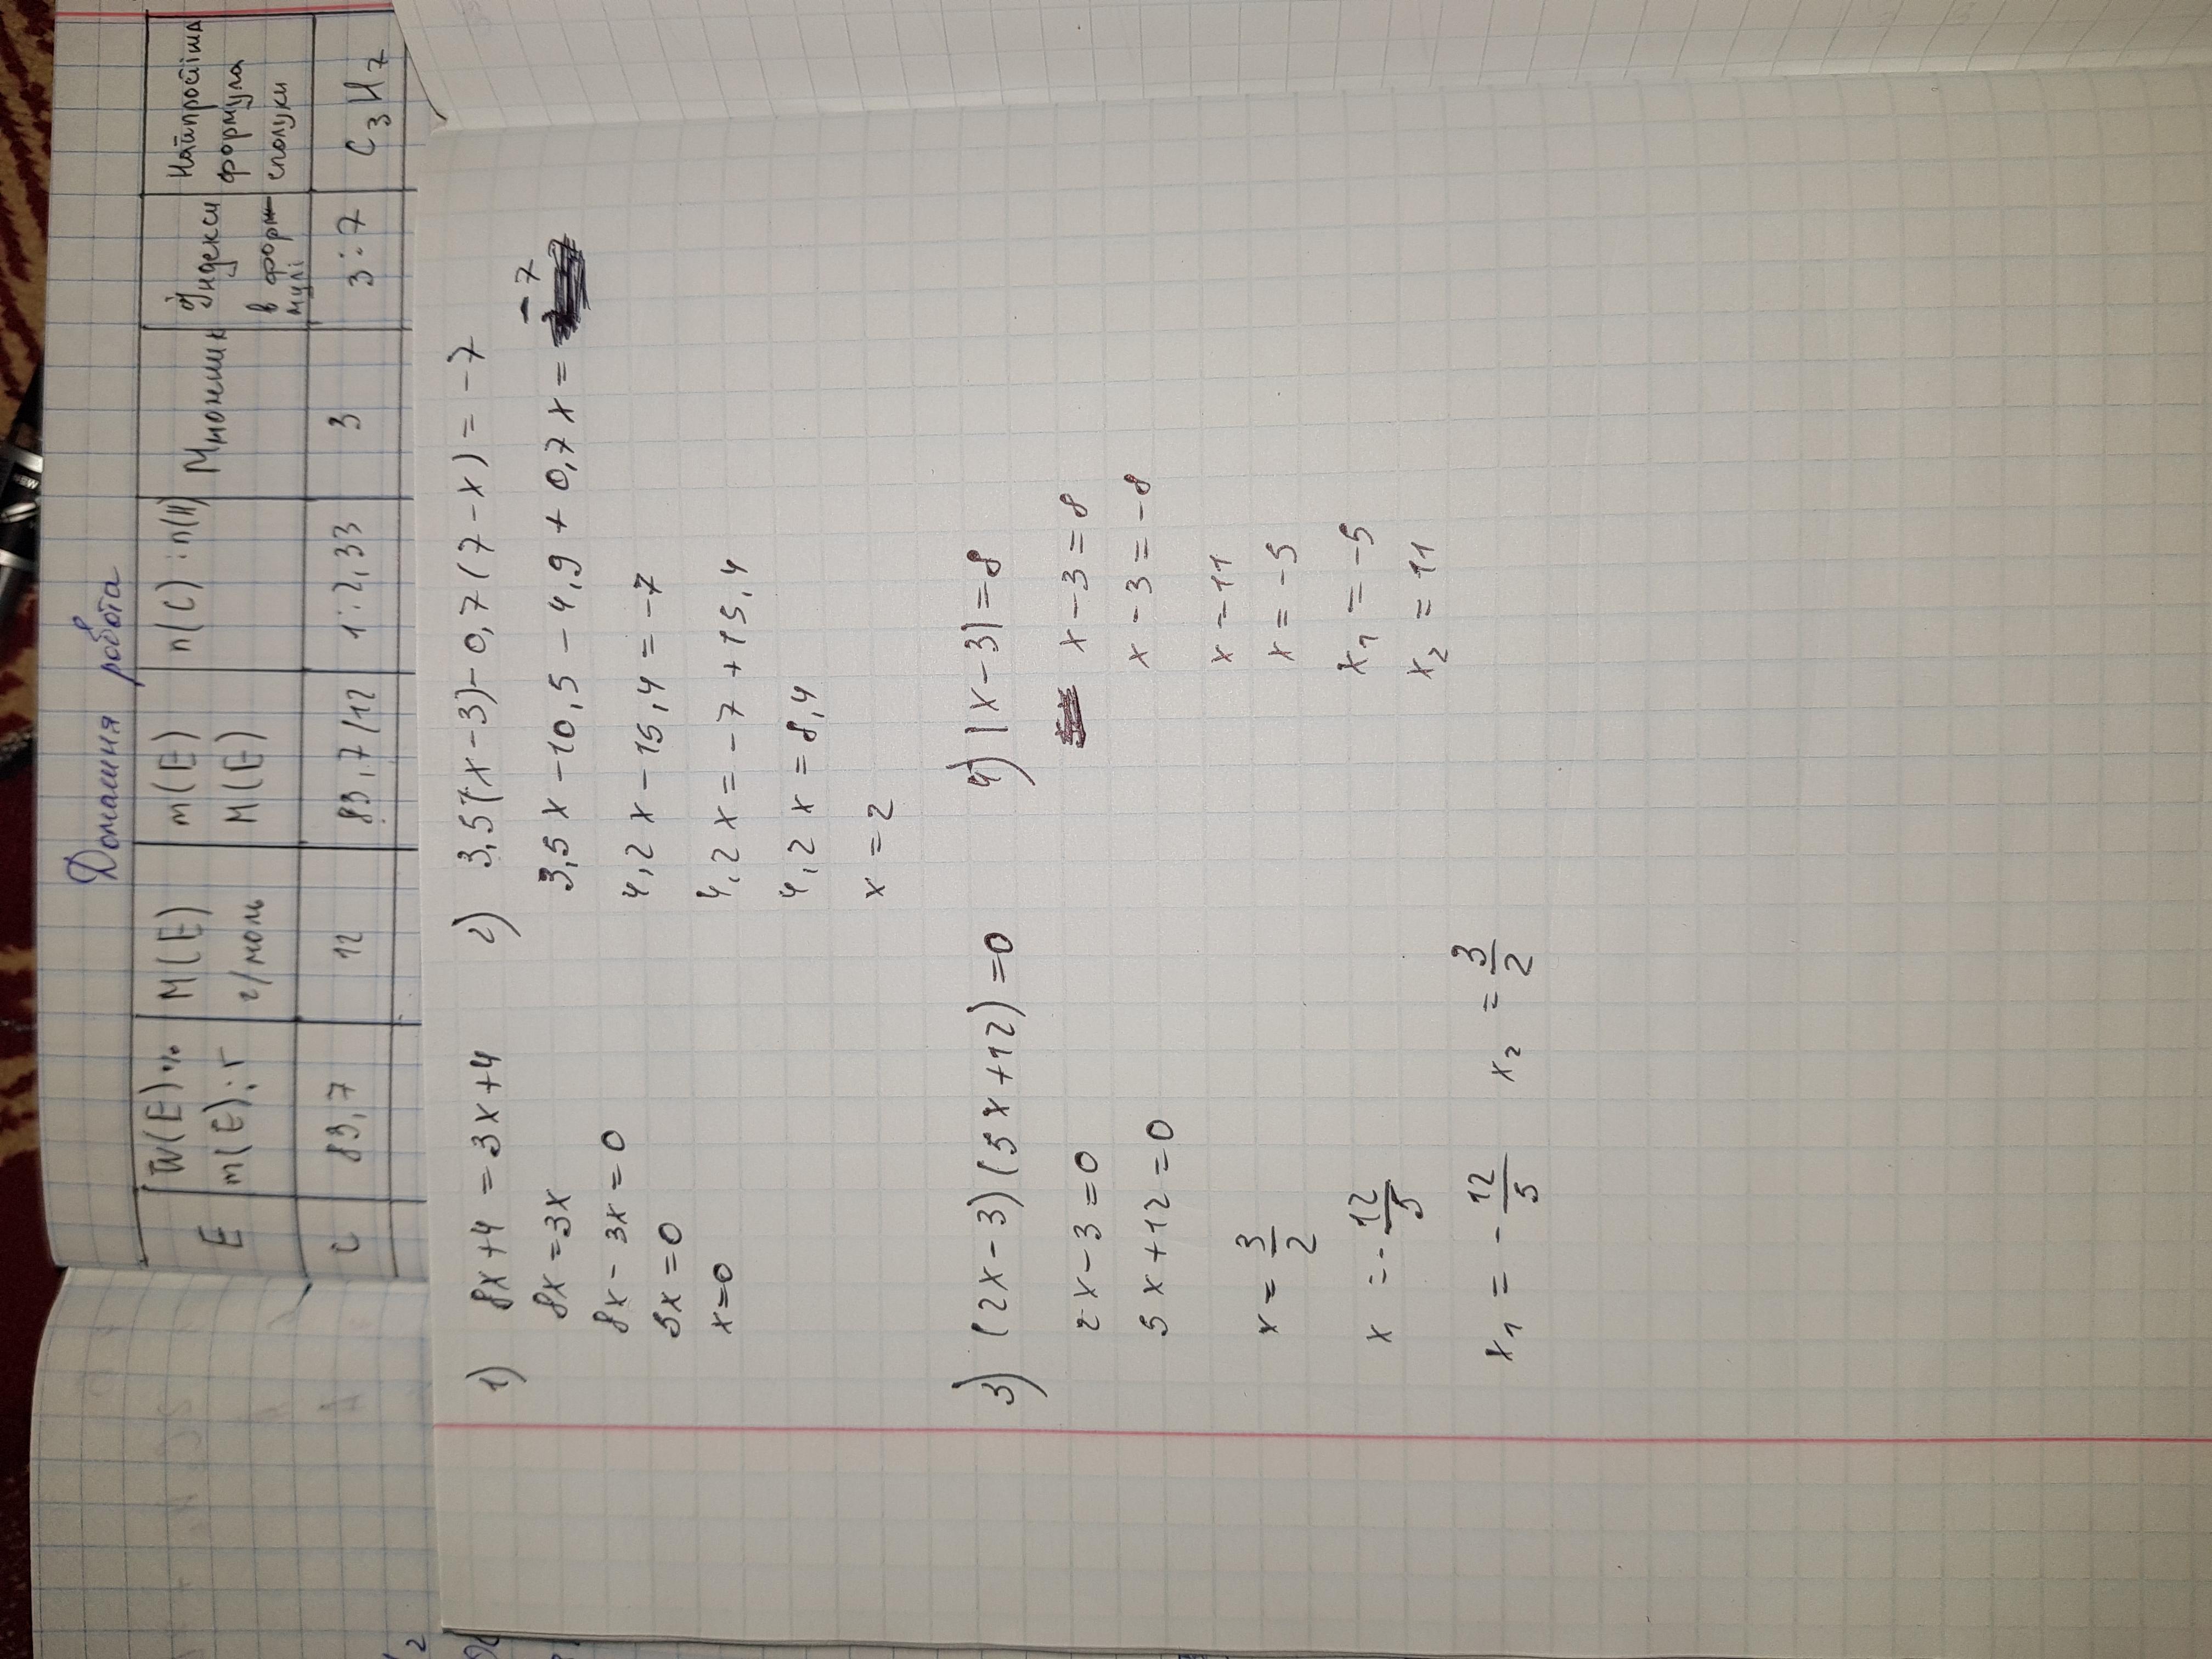 Домашня робота
E
W(E)%
m(E):г
M(E)
г/моль
m(E)
M(E)
n(C):n(H)
Множник
Індекси
в фор-
мулі
Найпростіша
формула
сполуки
C
83,7
12
83,7/12
1:2,33
3
3:7
C₃H₇
1) 8x+4=3x+4
8x=3x
8x-3x=0
5x=0
x=0
2) 3,5(x-3)-0,7(7-x)=-7
3,5x-10,5-4,9+0,7x=-7
4,2x-15,4=-7
4,2x=-7+15,4
4,2x=8,4
x=2
3) (2x-3)(5x+12)=0
2x-3=0
5x+12=0
x=3/2
x=-12/5
x₁=-12/5 x₂=3/2
4) |x-3|=8
x-3=8
x-3=-8
x=11
x=-5
x₁=-5
x₂=11